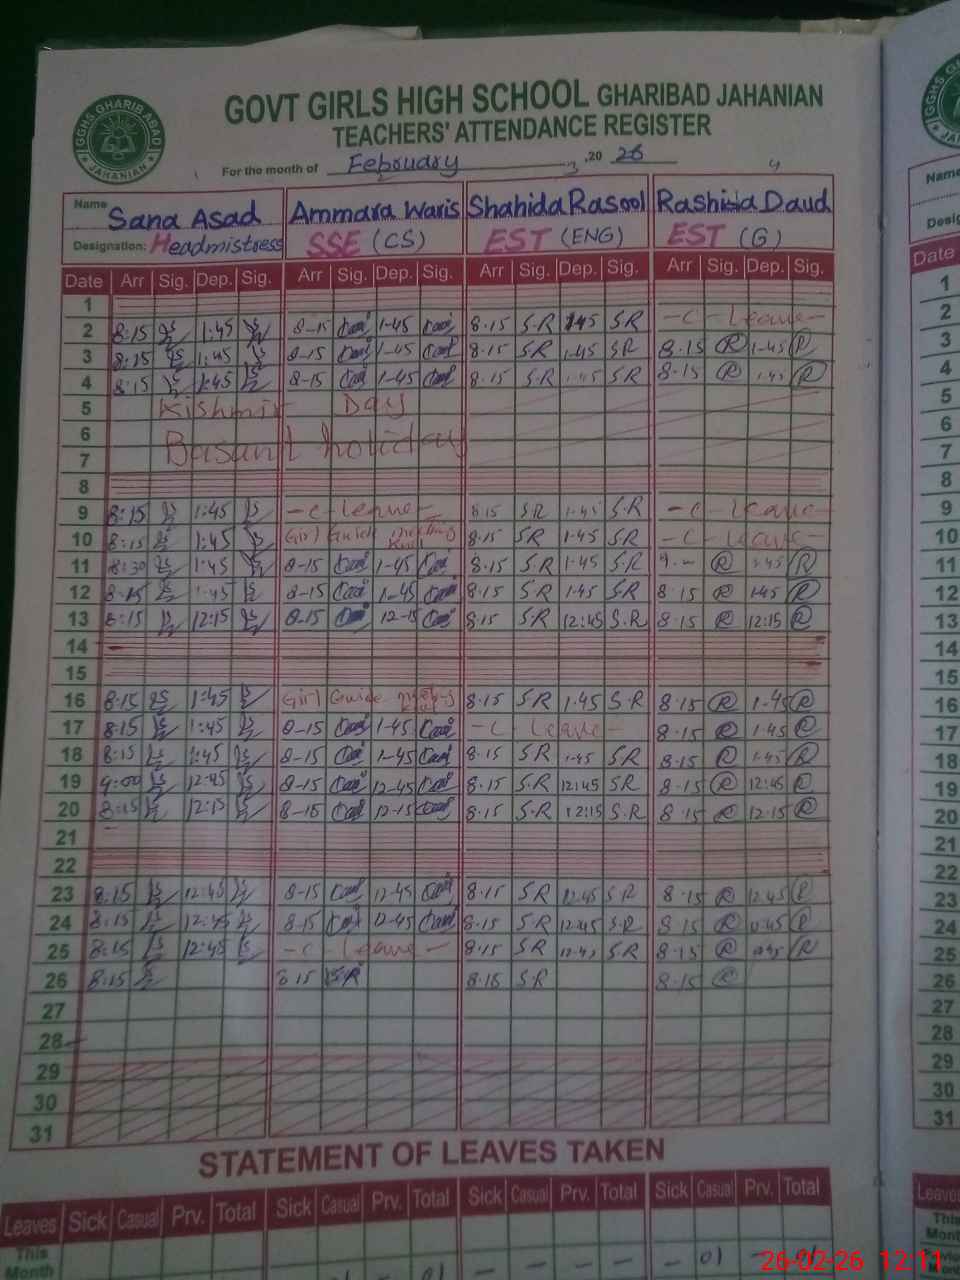 GOVT GIRLS HIGH SCHOOL GHARIBAD JAHANIAN
TEACHERS' ATTENDANCE REGISTER
GGHS GHARIB ABAD
JAHANIAN
For the month of February ,20 26
Name Sana Asad Ammara Waris Shahida Rasool Rashida Daud
Designation: Headmistress SSE (CS) EST (ENG) EST (G)
Date Arr Sig. Dep. Sig. Arr Sig. Dep. Sig. Arr Sig. Dep. Sig. Arr Sig. Dep. Sig.
1
2 8:15 1:45 8-15 1-45 8.15 S.R 1.45 S.R -C-Leave-
3 8:15 1:45 8-15 1-45 8.15 S.R 1.45 S.R 8.15 R 1-45 R
4 8:15 1:45 8-15 1-45 8.15 S.R 1.45 S.R 8.15 R 1.45 R
5 Kishmir Day
6 Basant holiday
7
8
9 8:15 1:45 -C-Leave- 8.15 S.R 1.45 S.R -C-Leave-
10 8:15 1:45 Girl Guide meeting 8.15 S.R 1.45 S.R -C-Leave-
11 8:30 1:45 8-15 1-45 8.15 S.R 1.45 S.R R 1.45 R
12 8:15 1:45 8-15 1-45 8.15 S.R 1.45 S.R 8.15 R 1.45 R
13 8:15 12:15 8-15 12-15 8.15 S.R 12:45 S.R 8.15 R 12:15 R
14
15
16 8:15 1:45 Girl Guide 8.15 S.R 1.45 S.R 8.15 R 1-45 R
17 8:15 1:45 8-15 1-45 -C-Leave- 8.15 R 1.45 R
18 8:15 1:45 8-15 1-45 8.15 S.R 1.45 S.R 8.15 R 1.45 R
19 9:00 12:45 8-15 12-45 8.15 S.R 12:45 S.R 8.15 R 12:45 R
20 8:15 12:15 8-15 12-15 8.15 S.R 12:15 S.R 8.15 R 12.15 R
21
22
23 8:15 12:45 8-15 12-45 8.15 S.R 12.45 S.R 8.15 R 12.45 R
24 8:15 12:45 8-15 12-45 8.15 S.R 12.45 S.R 8.15 R 12.45 R
25 8:15 12:45 -C-Leave- 8.15 S.R 12.45 S.R 8.15 R R
26 8:15 8.15 S.R 8.15 S.R 8.15 R
27
28
29
30
31
STATEMENT OF LEAVES TAKEN
Leaves Sick Casual Prv. Total Sick Casual Prv. Total Sick Casual Prv. Total Sick Casual Prv. Total
This Month 01 - - - - - 01 - 01
Name
Date
1
2
3
4
5
6
7
8
9
10
11
12
13
14
15
16
17
18
19
20
21
22
23
24
25
26
27
28
29
30
31
Leaves
This
26-02-26 12:11